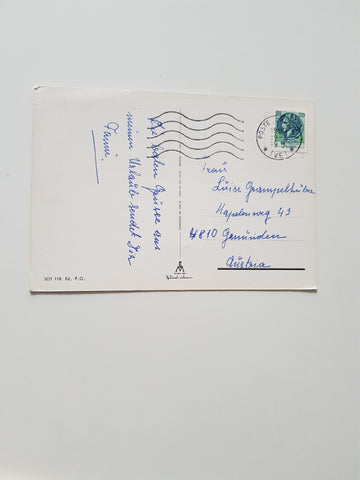 Die besten Grüsse aus
meinem Urlaub sendet Dir
Frau
Luise Grampelhuber
43
4810 Gmunden
Austria
POSTE
(VE)
SOT 119 Ed. P.G.